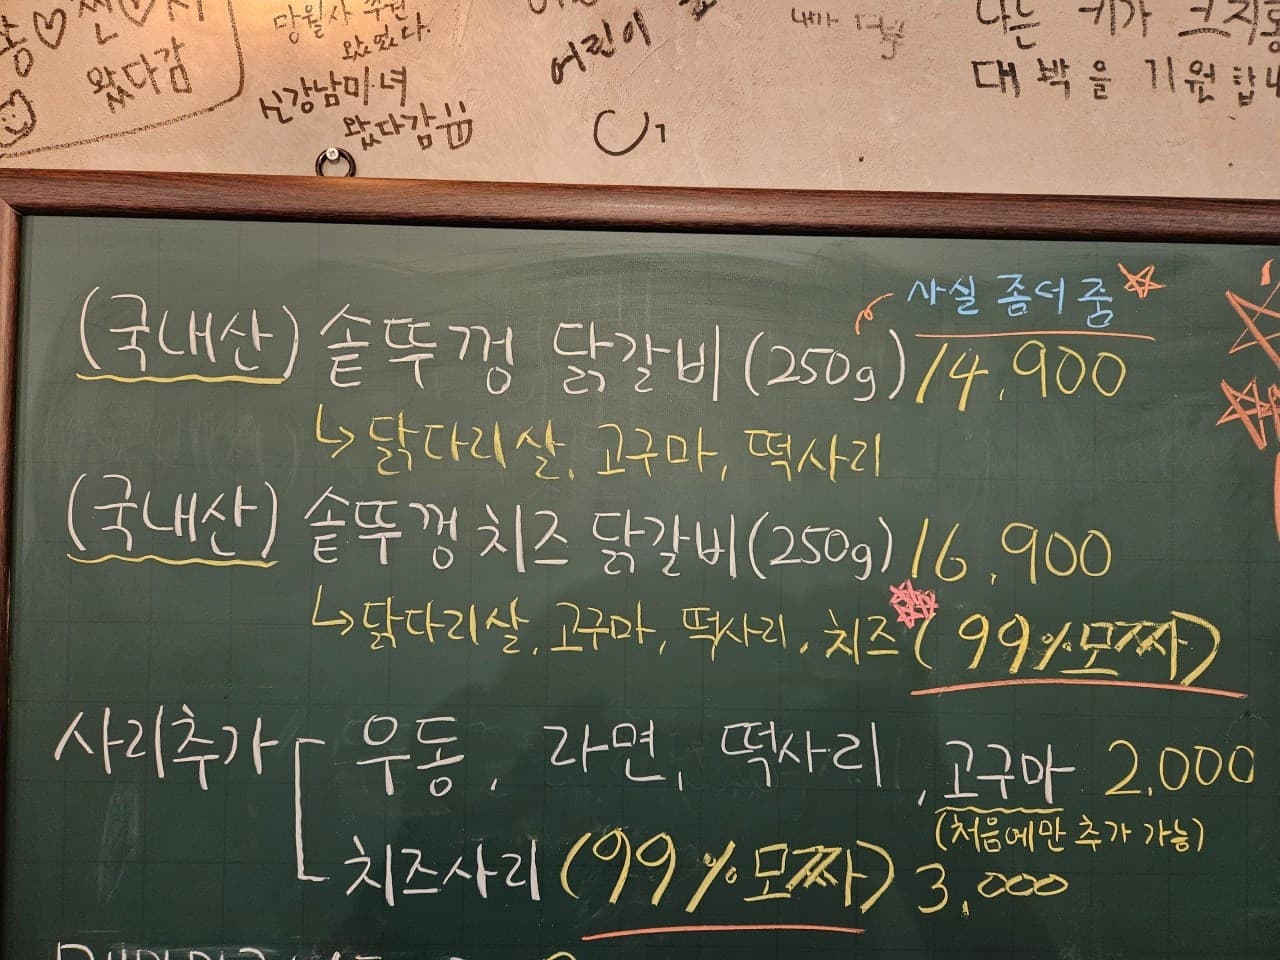 왔다감
망월사
왔었다.
신강남미녀
왔다감
어린이
나는 키가 크지
대박을 기원합니
사실 좀더 줌
(국내산) 솥뚜껑 닭갈비 (250g) 14,900
↳ 닭다리살, 고구마, 떡사리
(국내산) 솥뚜껑 치즈 닭갈비 (250g) 16,900
↳ 닭다리살, 고구마, 떡사리, 치즈 (99%모짜)
사리추가 우동, 라면, 떡사리, 고구마 2,000
(처음에만 추가 가능)
치즈사리 (99%모짜) 3,000